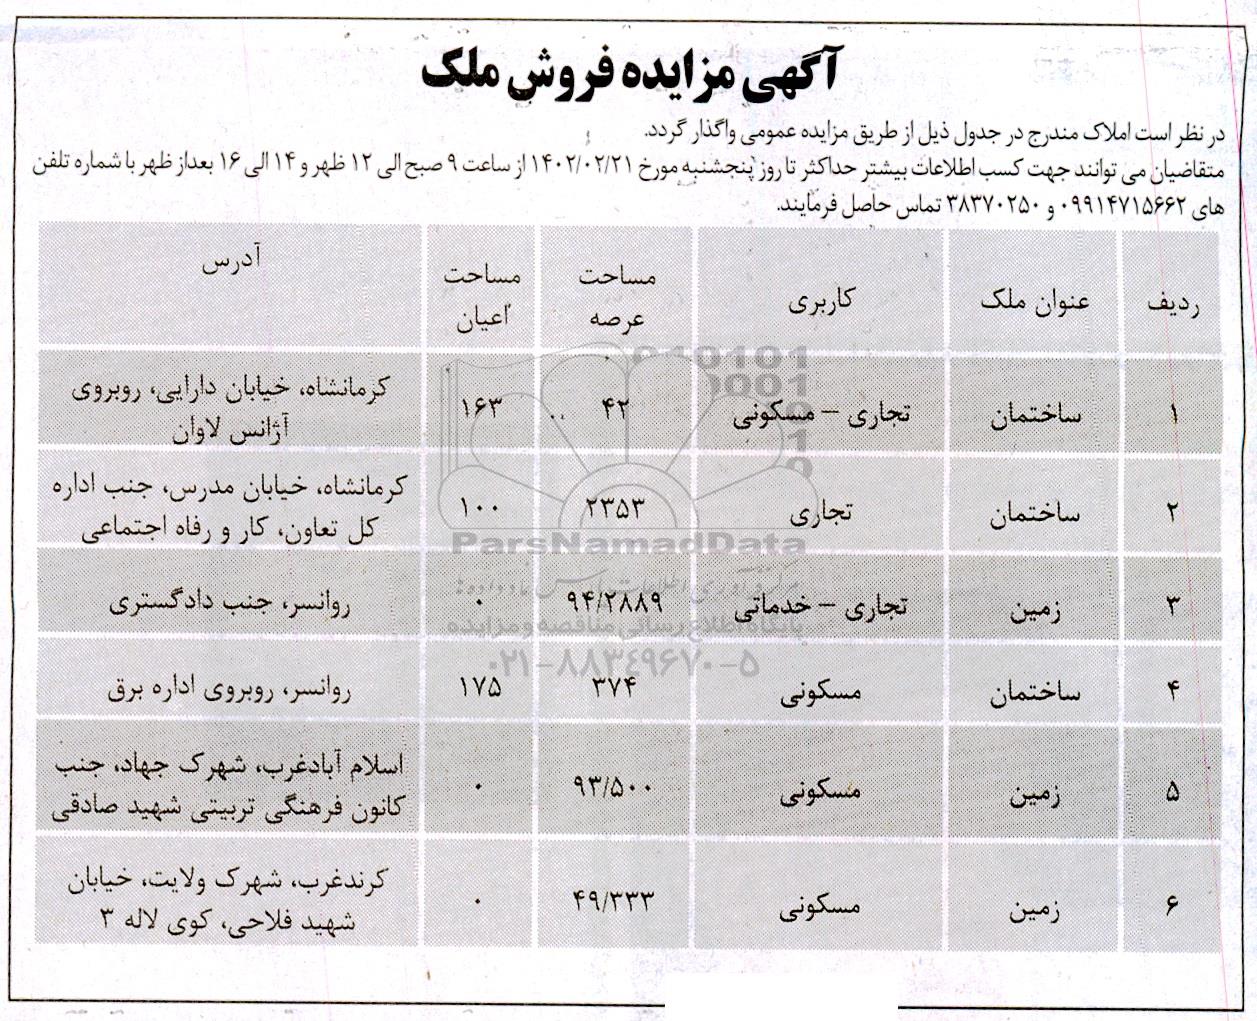 آگهی مزایده فروش ملک
در نظر است املاک مندرج در جدول ذیل از طریق مزایده عمومی واگذار گردد.
متقاضیان می توانند جهت کسب اطلاعات بیشتر حداکثر تا روز پنجشنبه مورخ ۱۴۰۲/۰۲/۲۱ از ساعت ۹ صبح الی ۱۲ ظهر و ۱۴ الی ۱۶ بعداز ظهر با شماره تلفن
های ۰۹۹۱۴۷۱۵۶۶۲ و ۳۸۳۷۰۲۵۰ تماس حاصل فرمایند.
ردیف عنوان ملک کاربری مساحت عرصه مساحت اعیان آدرس
۱ ساختمان تجاری – مسکونی ۴۲ ۱۶۳ کرمانشاه، خیابان دارایی، روبروی
آژانس لاوان
۲ ساختمان تجاری ۲۳۵۳ ۱۰۰ کرمانشاه، خیابان مدرس، جنب اداره
کل تعاون، کار و رفاه اجتماعی
۳ زمین تجاری – خدماتی ۹۴/۲۸۸۹ ۰ روانسر، جنب دادگستری
۴ ساختمان مسکونی ۳۷۴ ۱۷۵ روانسر، روبروی اداره برق
۵ زمین مسکونی ۹۳/۵۰۰ ۰ اسلام آبادغرب، شهرک جهاد، جنب
کانون فرهنگی تربیتی شهید صادقی
۶ زمین مسکونی ۴۹/۳۳۳ ۰ کرندغرب، شهرک ولایت، خیابان
شهید فلاحی، کوی لاله ۳
ParsNamadData
پایگاه اطلاع رسانی مناقصه و مزایده
۰۲۱-۸۸۳۴۹۶۷۰-۵